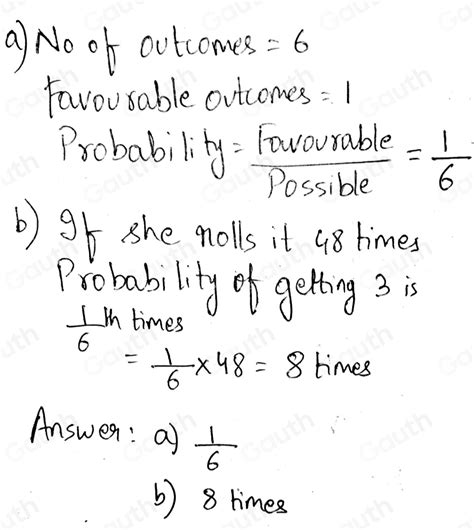 a) No of outcomes = 6
Favourable outcomes = 1
Probability = Favourable / Possible = 1/6
b) If she rolls it 48 times
Probability of getting 3 is
1/6 th times
= 1/6 × 48 = 8 times
Answer: a) 1/6
b) 8 times